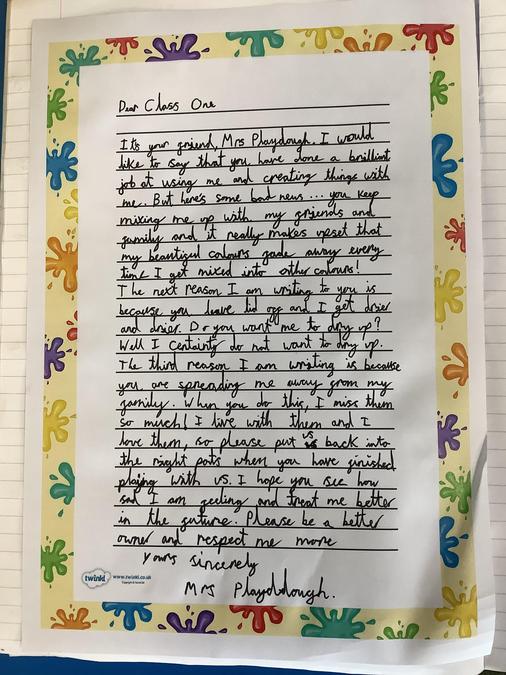 Dear Class One
It's your friend, Mrs Playdough. I would
like to say that you have done a brilliant
job at using me and creating things with
me. But here's some bad news ... you keep
mixing me up with my friends and
family and it really makes upset that
my beautiful colours fade away every
time I get mixed into other colours!
The next reason I am writing to you is
because you leave lid off and I get drier
and drier. Do you want me to dry up?
Well I certainty do not want to dry up.
The third reason I am writing is because
you are spreading me away from my
family. When you do this, I miss them
so much! I live with them and I
love them, so please put us back into
the right pots when you have finished
playing with us. I hope you see how
sad I am feeling and treat me better
in the future. Please be a better
owner and respect me more
Yours sincerely
Mrs Playddough.
twinkl www.twinkl.co.uk